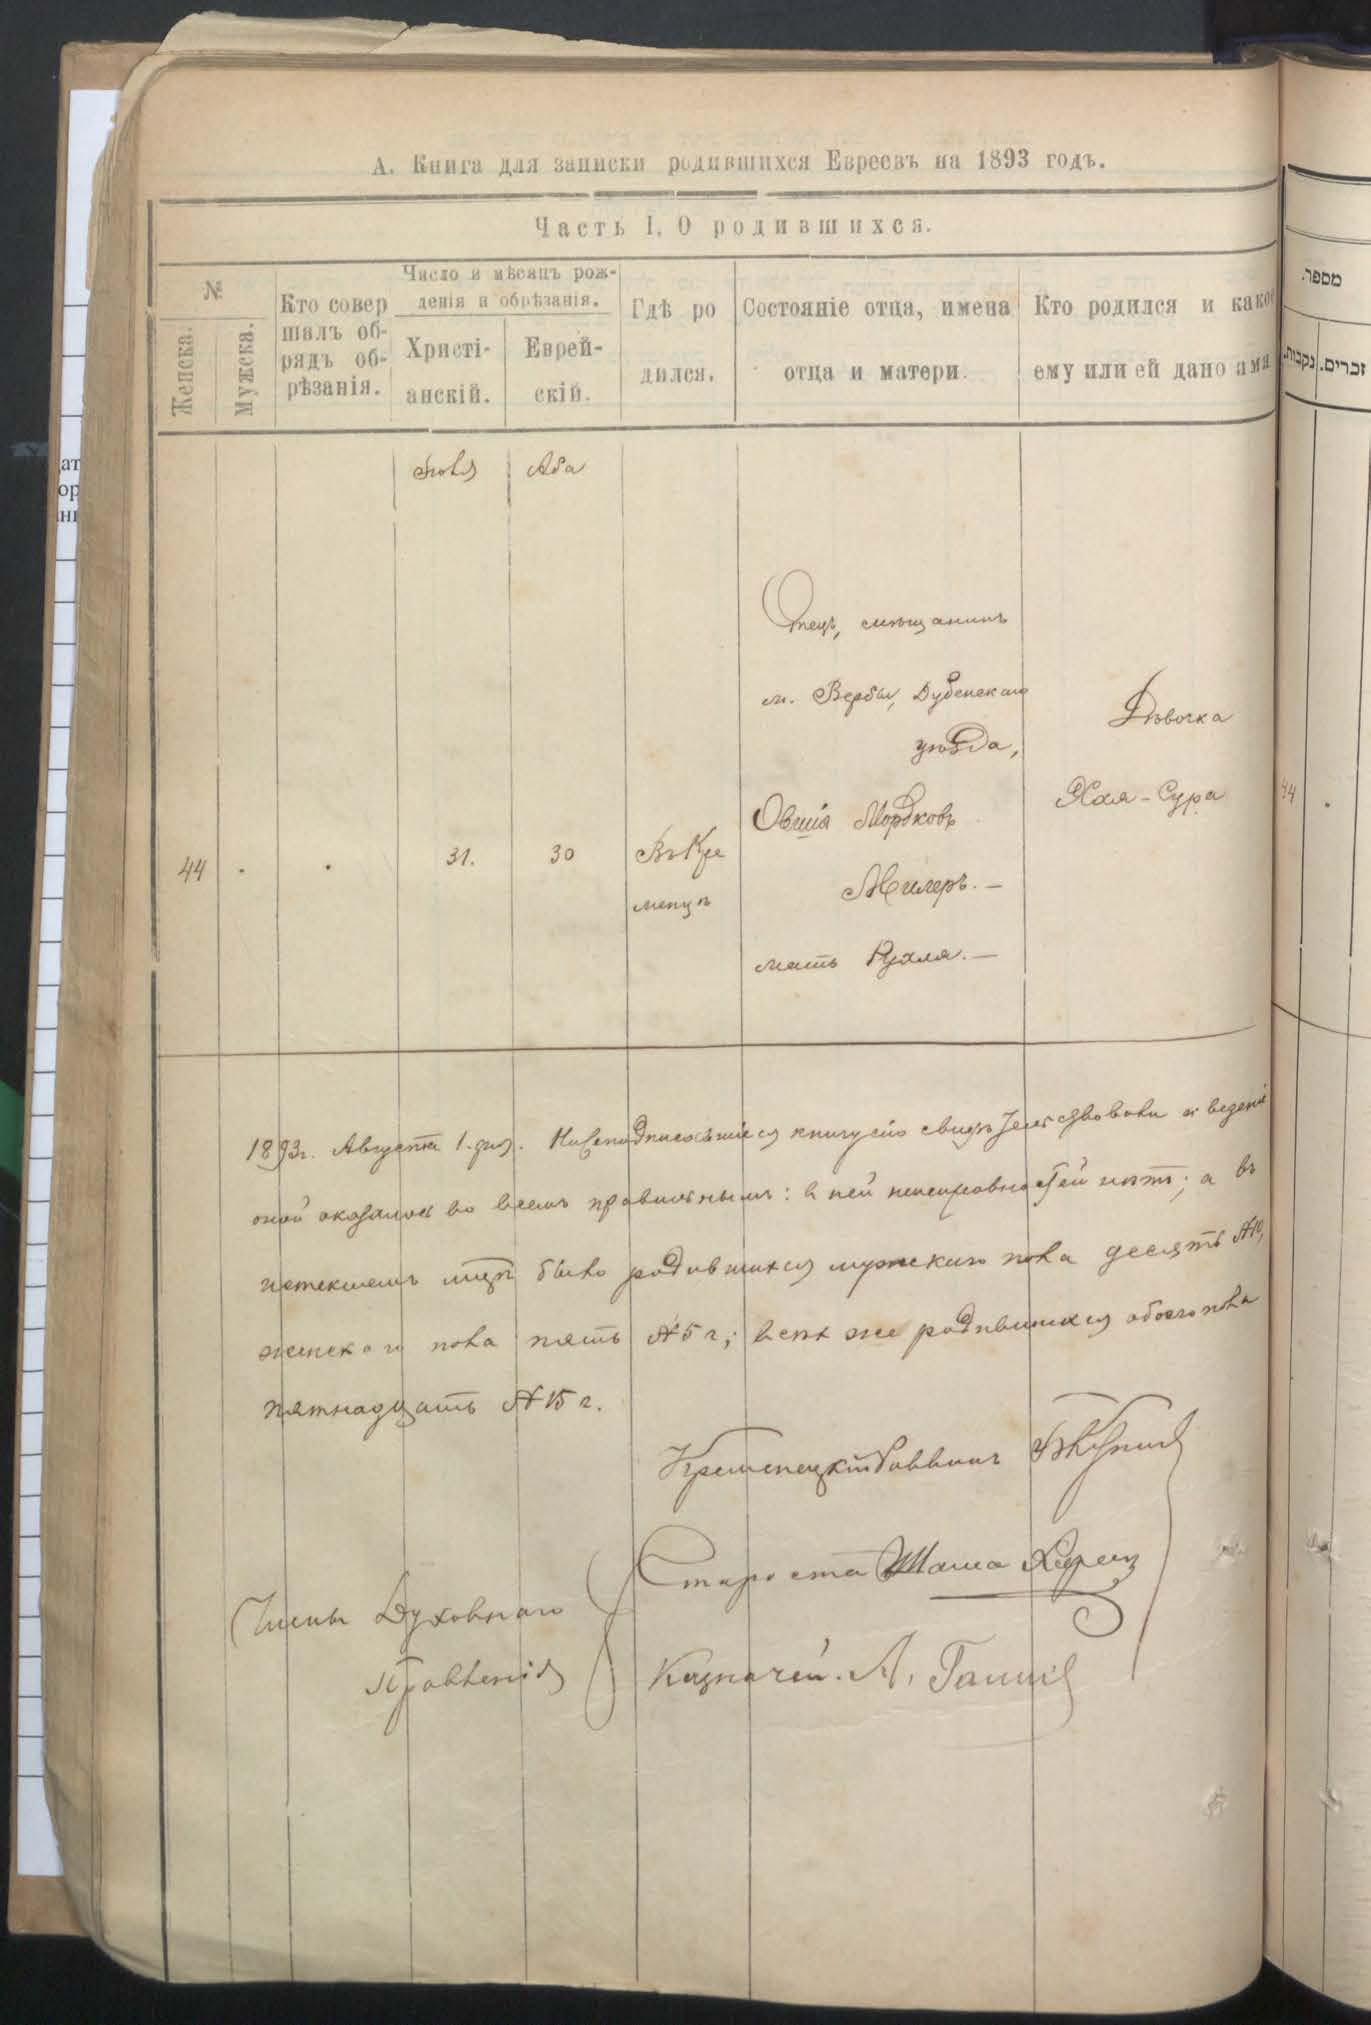 А. Книга для записки родившихся Евреевъ на 1893 годъ.
Часть I. О родившихся.
№
Женска.
Мужска.
Кто совер
шалъ об-
рядъ об-
рѣзанія.
Число и мѣсяцъ рож-
денія и обрѣзанія.
Христі-
анскій.
Еврей-
скій.
Гдѣ ро
дился.
Состояніе отца, имена
отца и матери.
Кто родился и какое
ему или ей дано имя
מספר.
נקבות.
זכרים.
Іюля
Аба
44
31.
30
Въ Кре
менцѣ
Отецъ, мѣщанинъ
м. Вербы, Дубенскаго
уѣзда,
Овшія Мордковъ
Милеръ. —
мать Рухля. —
Дѣвочка
Хая - Сура
44
1893г. Августа 1. дня. Нижеподписавшіеся книгу сію свидѣтельствовали и веденіе
оной оказалось во всемъ правильнымъ: въ ней неисправностей нѣтъ; а въ
истекшемъ мцѣ было родившихся мужскаго пола десять № 10,
женскаго пола пять № 5 г; всѣхъ же родившихся обоего пола
пятнадцать № 15 г.
Кременецкій Раввинъ
Члены Духовнаго
Правленія
Староста
Казначей. А.